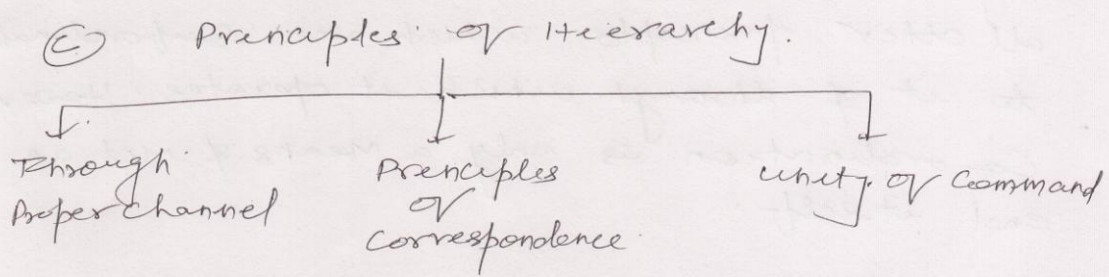 Ⓒ Principles of Hierarchy.
Through
Proper channel
Principles
of
Correspondence
Unity of Command